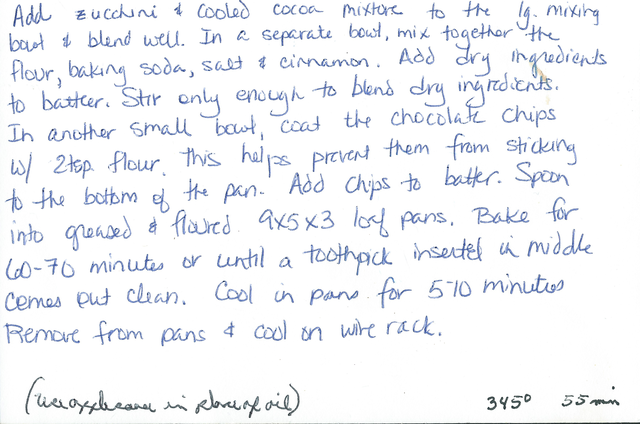 Add zucchini & cooled cocoa mixture to the lg. mixing
bowl & blend well. In a separate bowl, mix together the
flour, baking soda, salt & cinnamon. Add dry ingredients
to batter. Stir only enough to blend dry ingredients.
In another small bowl, coat the chocolate chips
w/ 2tsp. flour. This helps prevent them from sticking
to the bottom of the pan. Add chips to batter. Spoon
into greased & floured 9x5x3 loaf pans. Bake for
60-70 minutes or until a toothpick inserted in middle
comes out clean. Cool in pans for 5-10 minutes
Remove from pans & cool on wire rack.
(use applesauce in place of oil) 345° 55 min